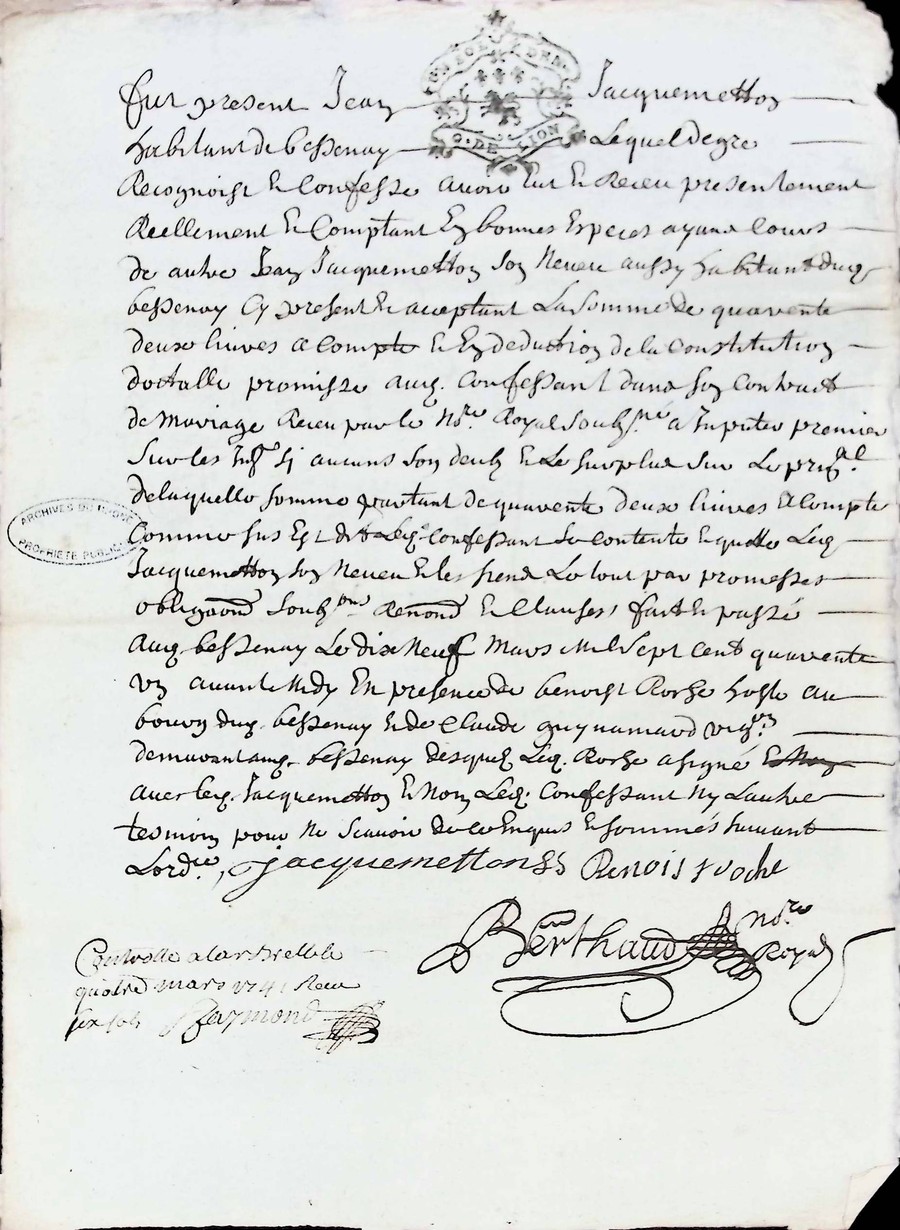 Fut present Jean Jacquemetton
habitant de bessenay Lequel de gre
Recognoist Et Confesse avoir Eut Et Receu presentement
Reellement Et Comptant En bonnes Especes ayant Cours
de autre Jean Jacquemetton son Neveu aussy habitant dudq
bessenay Cy present Et acceptant La somme de quarente
deux livres a Compte Et En deduction de la Constitution
dottalle promisse auq. Confessant dans son Contract
de mariage Receu par le No.re Royal soubs.né a Inputer premier
Sur les Int Si aucuns son deub Et Le surplus sur Le prig.al
de laquelle somme partant de quarente deux livres a Compte
Comme sus Est dit Leq. Confessant Se contente Et quitte Led
Jacquemetton son Neveu Et les siens Le tout par promesses
obligaons soubs.ons Renond Et Clauses fait Et passé
auq. bessenay Le dix Neuf mars mil sept cent quarente
un avant Midy En presence de benoist Roche hoste au
bourg duq. bessenay Et de Claude guynamard vig.on
demurant auq. bessenay desquels Leq. Roche a signé Et Non
avec leq. Jacquemetton Et Non Leq. Confessant Ny L'autre
tesmoin pour Ne Scavoir de ce Enquis Et sommés suivant
Lord.ce, Jacquemetton Benoist roche
Berthaud no.re Royal
Controlle a larbrelle le
mars 1741 Receu
six sols Raymond
ARCHIVES DU RHÔNE
PROPRIÉTÉ PUBLIQUE
G. DE LION